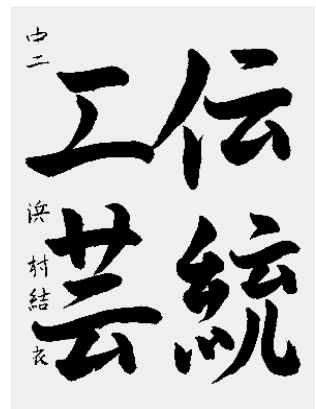 伝統
工芸
中二 浜村結衣